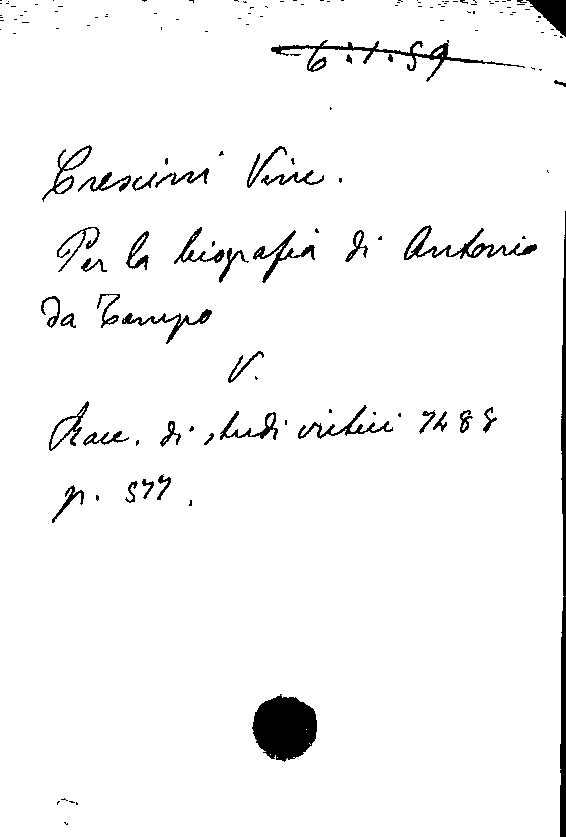 6.1.59
Crescini Vinc.
Per la biografia di Antonio
da Tempo
V.
Racc. di studi critici 7488
p. 577.